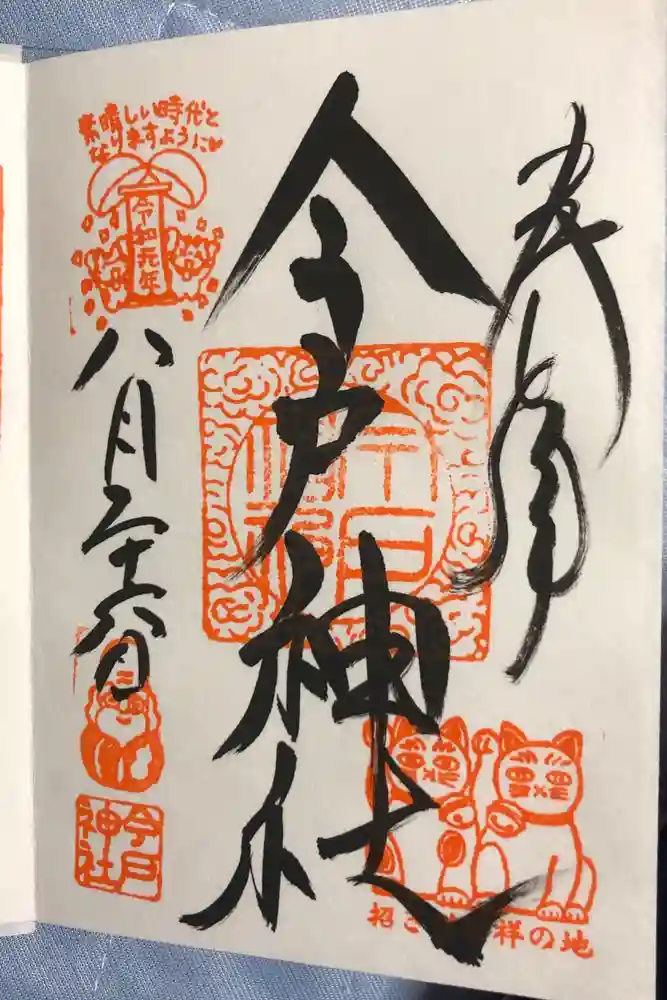 奉拝
今戸神社
素晴しい時代と
なりますように♡
令和元年
八月二十六日
今戸
神社
招き猫発祥の地